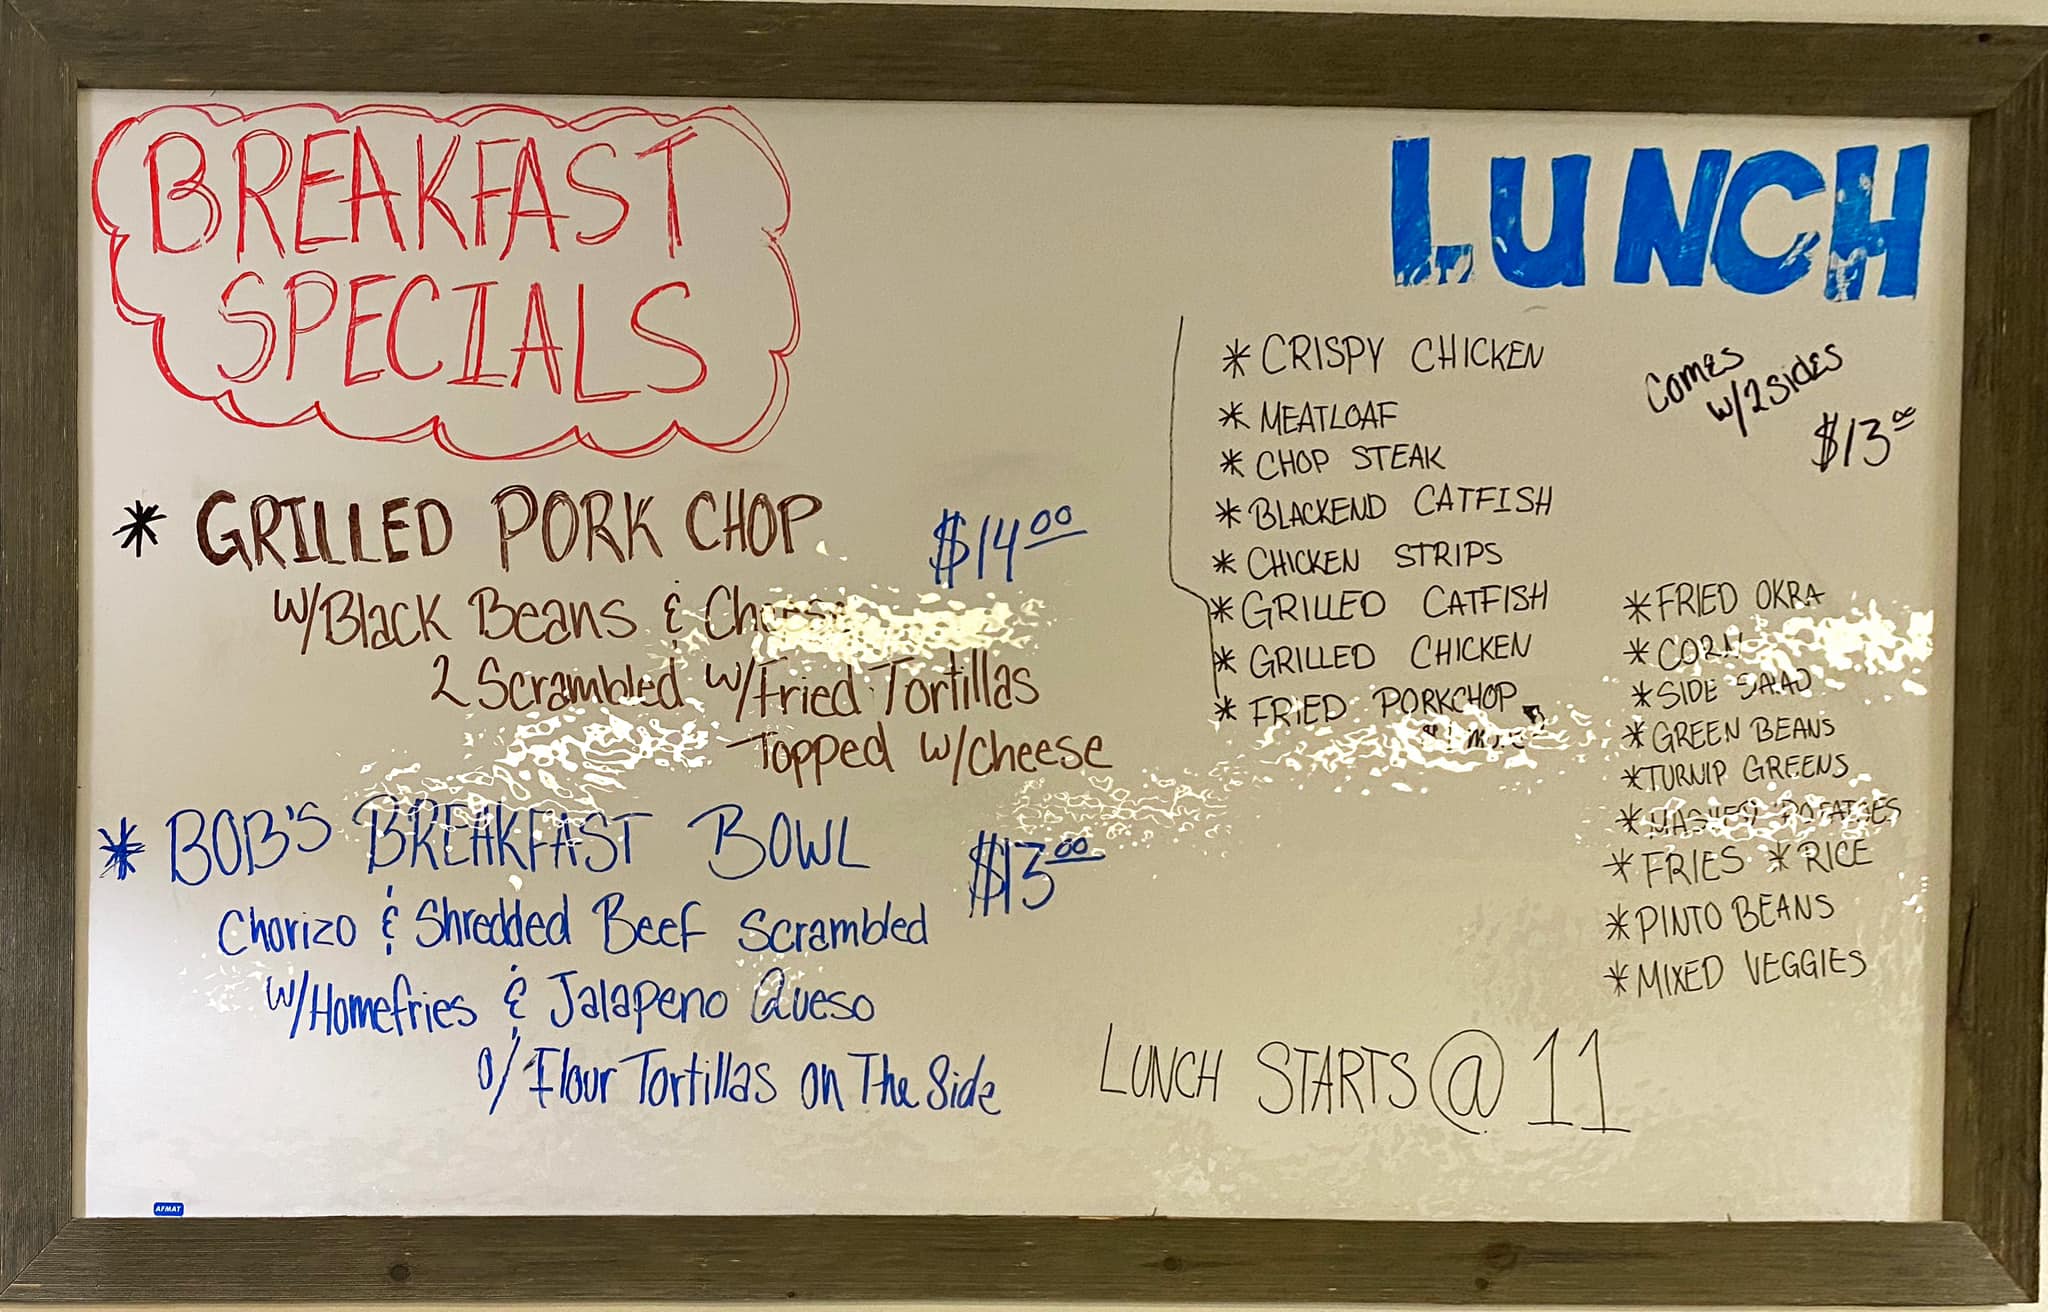 BREAKFAST
SPECIALS
* GRILLED PORK CHOP $14.00
w/Black Beans & Cheese
2 Scrambled w/Fried Tortillas
Topped w/cheese
* BOB'S BREAKFAST BOWL $13.00
Chorizo & Shredded Beef Scrambled
w/Homefries & Jalapeno Queso
o/Flour Tortillas on The Side
LUNCH
* CRISPY CHICKEN
* MEATLOAF
* CHOP STEAK
* BLACKEND CATFISH
* CHICKEN STRIPS
* GRILLED CATFISH
* GRILLED CHICKEN
* FRIED PORKCHOP
Comes
w/2 sides
$13.00
* FRIED OKRA
* CORN
* SIDE SALAD
* GREEN BEANS
* TURNIP GREENS
* MASHED POTATOES
* FRIES * RICE
* PINTO BEANS
* MIXED VEGGIES
LUNCH STARTS @ 11
AFMAT